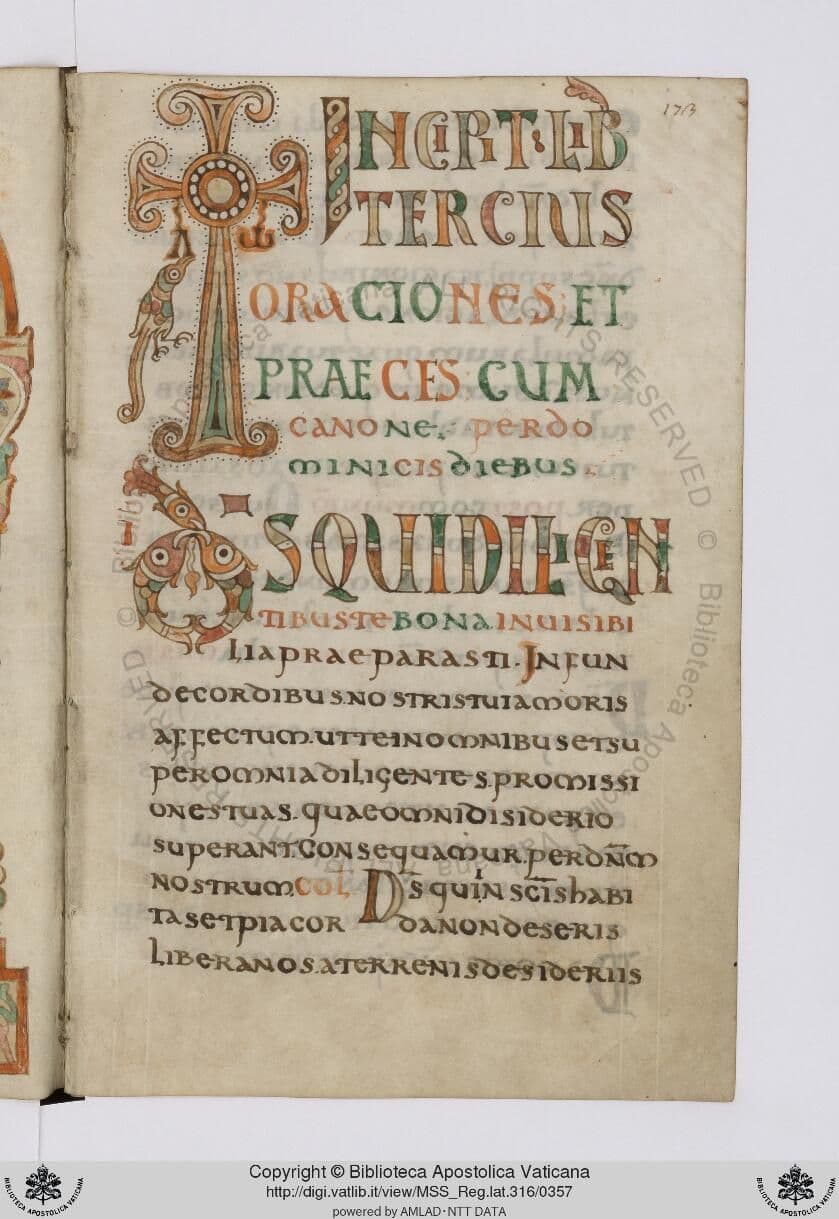 173
INCIPIT LIB
TERCIUS
Α ω
ORACIONES ET
PRAECES CUM
CANONE PERDO
MINICIS DIEBUS
D̅S QUI DILIGEN
TIBUS TE BONA INUISIBI
LIA PRAEPARASTI. INFUN
DE CORDIBUS NOSTRIS TUI AMORIS
AFFECTUM. UT TE IN OMNIBUS ET SU
PER OMNIA DILIGENTES. PROMISSI
ONES TUAS. QUAE OMNI DISIDERIO
SUPERANT. CONSEQUAMUR. PER DN̅M
NOSTRUM. COL D̅S QUI IN SC̅IS HABI
TAS ET PIA COR DA NON DESERIS
LIBERA NOS. A TERRENIS DESIDERIIS
© Biblioteca Apostolica Vaticana
RIGHTS RESERVED
Copyright © Biblioteca Apostolica Vaticana
http://digi.vatlib.it/view/MSS_Reg.lat.316/0357
powered by AMLAD·NTT DATA
BIBLIOTECA APOSTOLICA VATICANA
BIBLIOTECA APOSTOLICA VATICANA